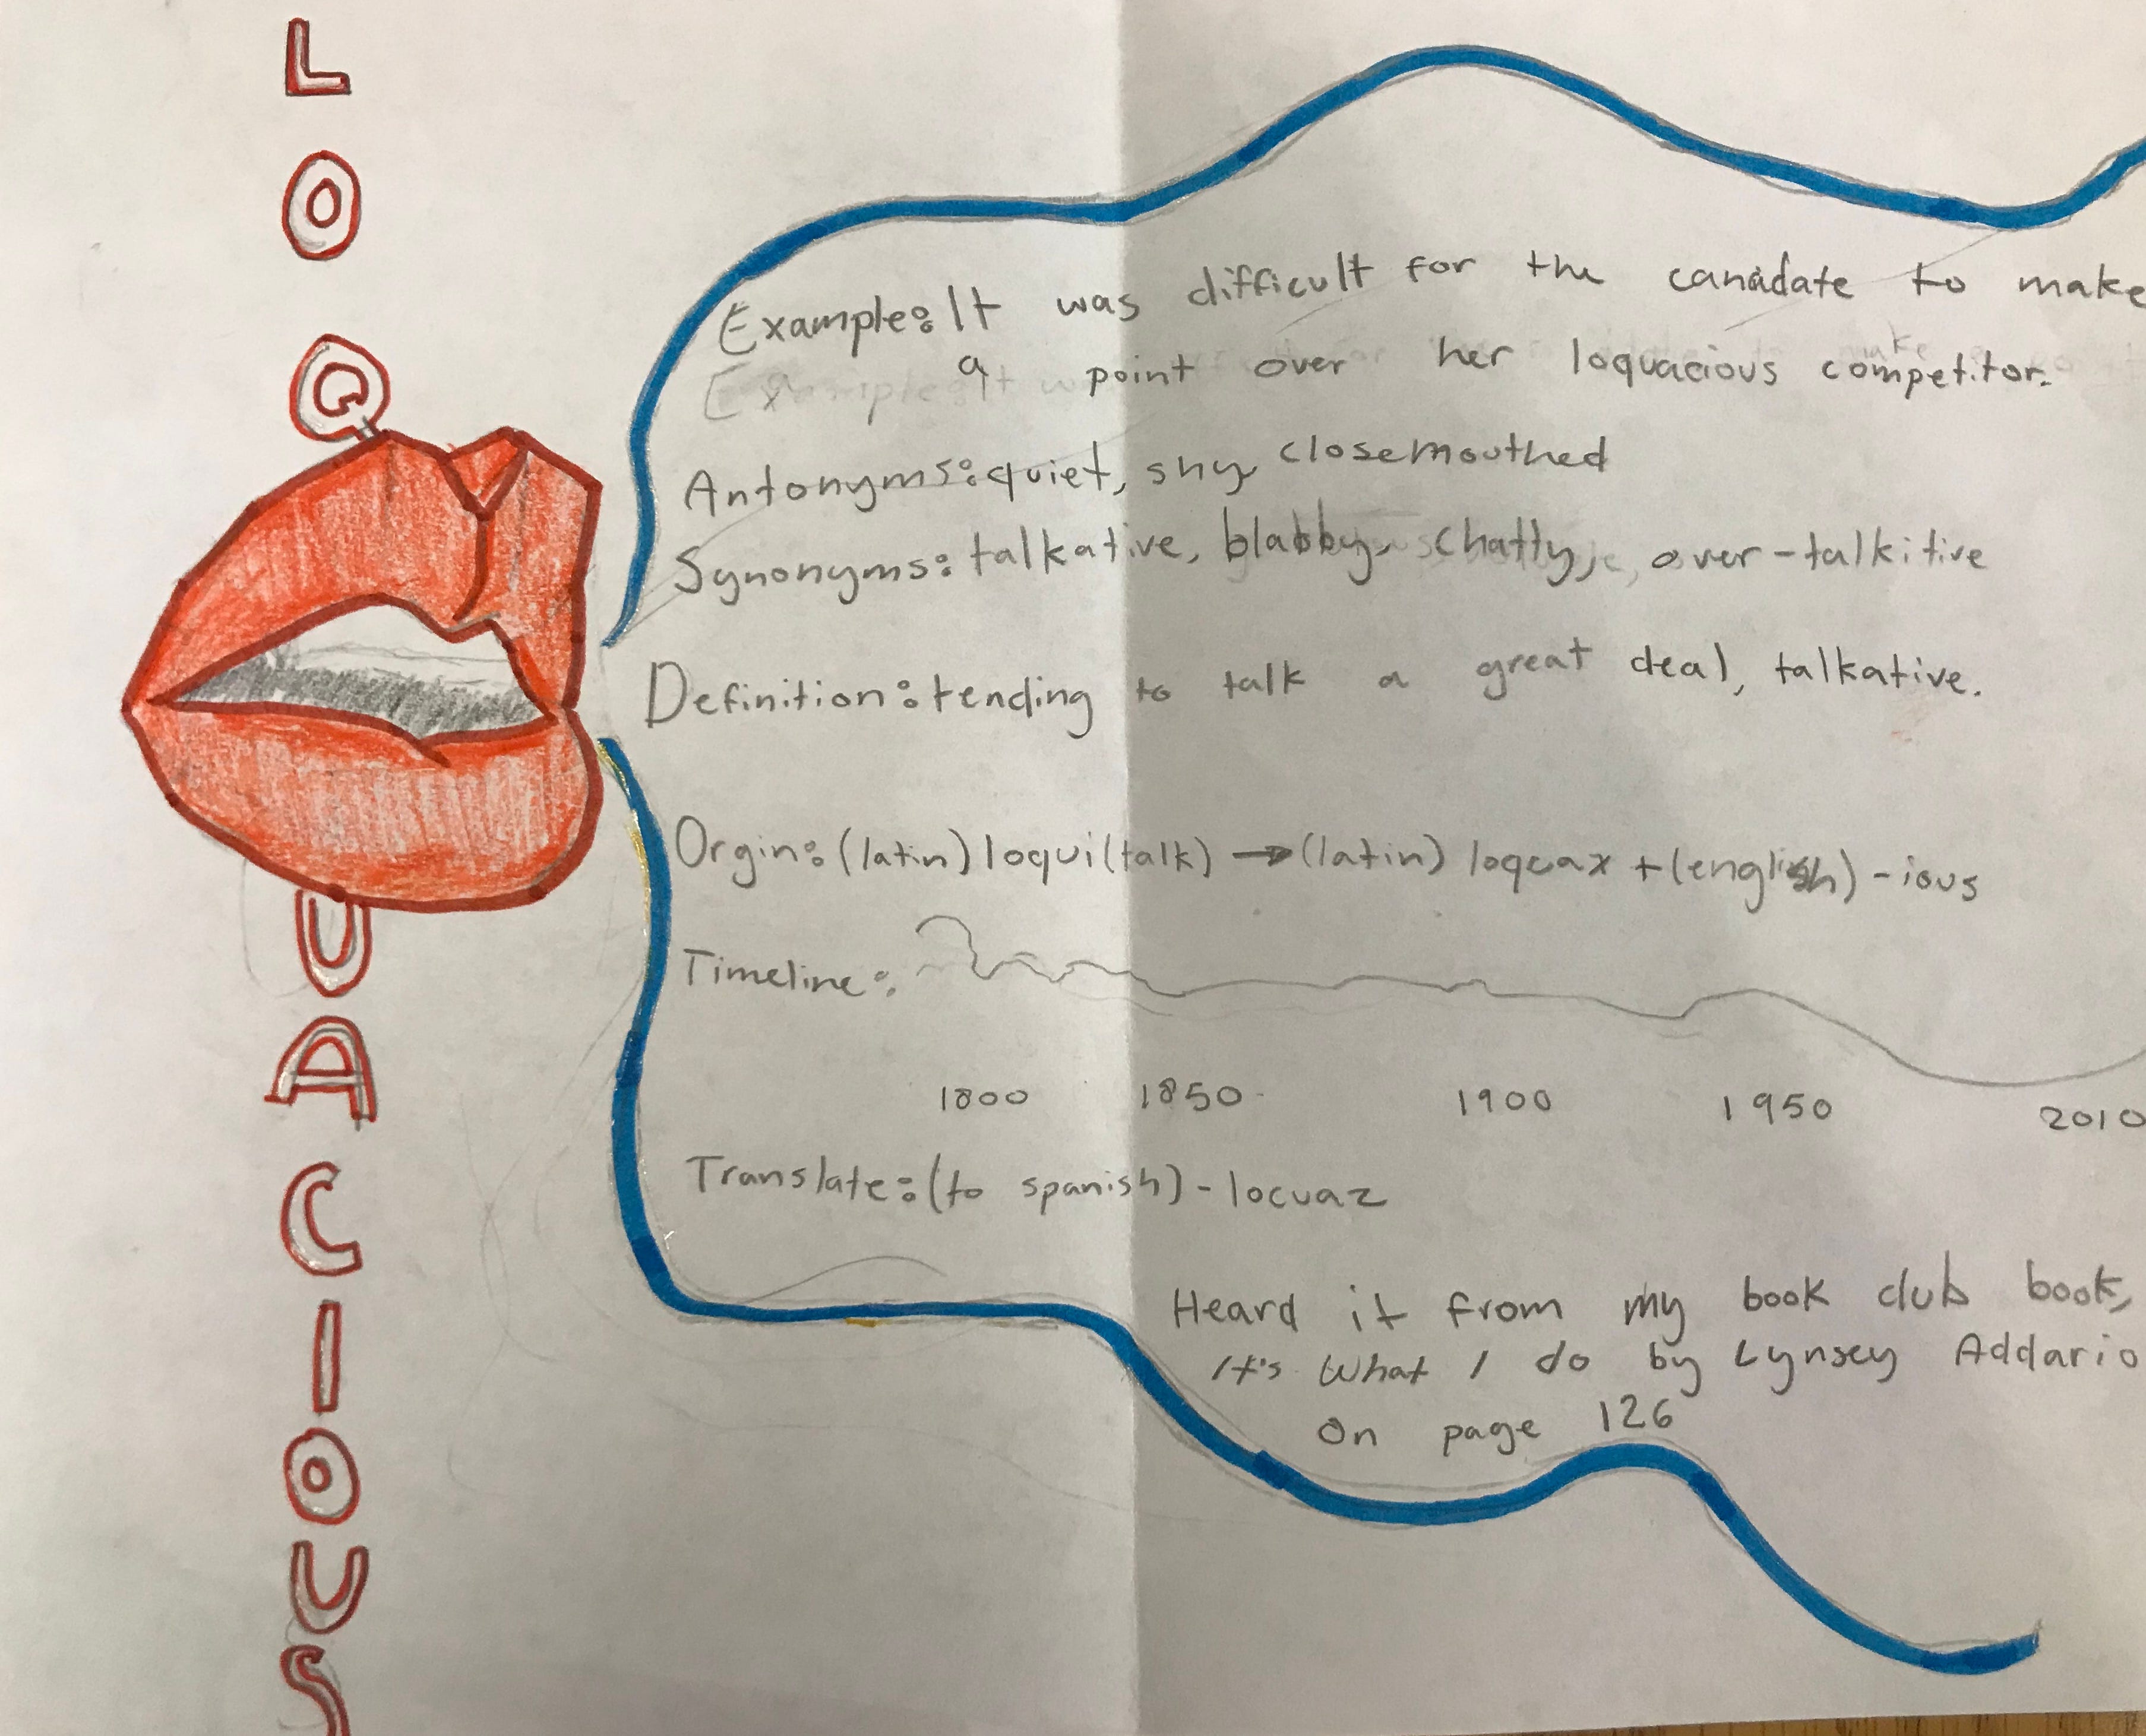 LOQUACIOUS
Example: It was difficult for the canadate to make
a point over her loquacious competitor.
Antonyms: quiet, shy, closemouthed
Synonyms: talkative, blabby, chatty, over-talkitive
Definition: tending to talk a great deal, talkative.
Orgin: (latin) loqui (talk) → (latin) loquax + (english) -ious
Timeline:
1800 1850 1900 1950 2010
Translate: (to spanish) - locuaz
Heard it from my book club book,
It's What I do by Lynsey Addario
On page 126